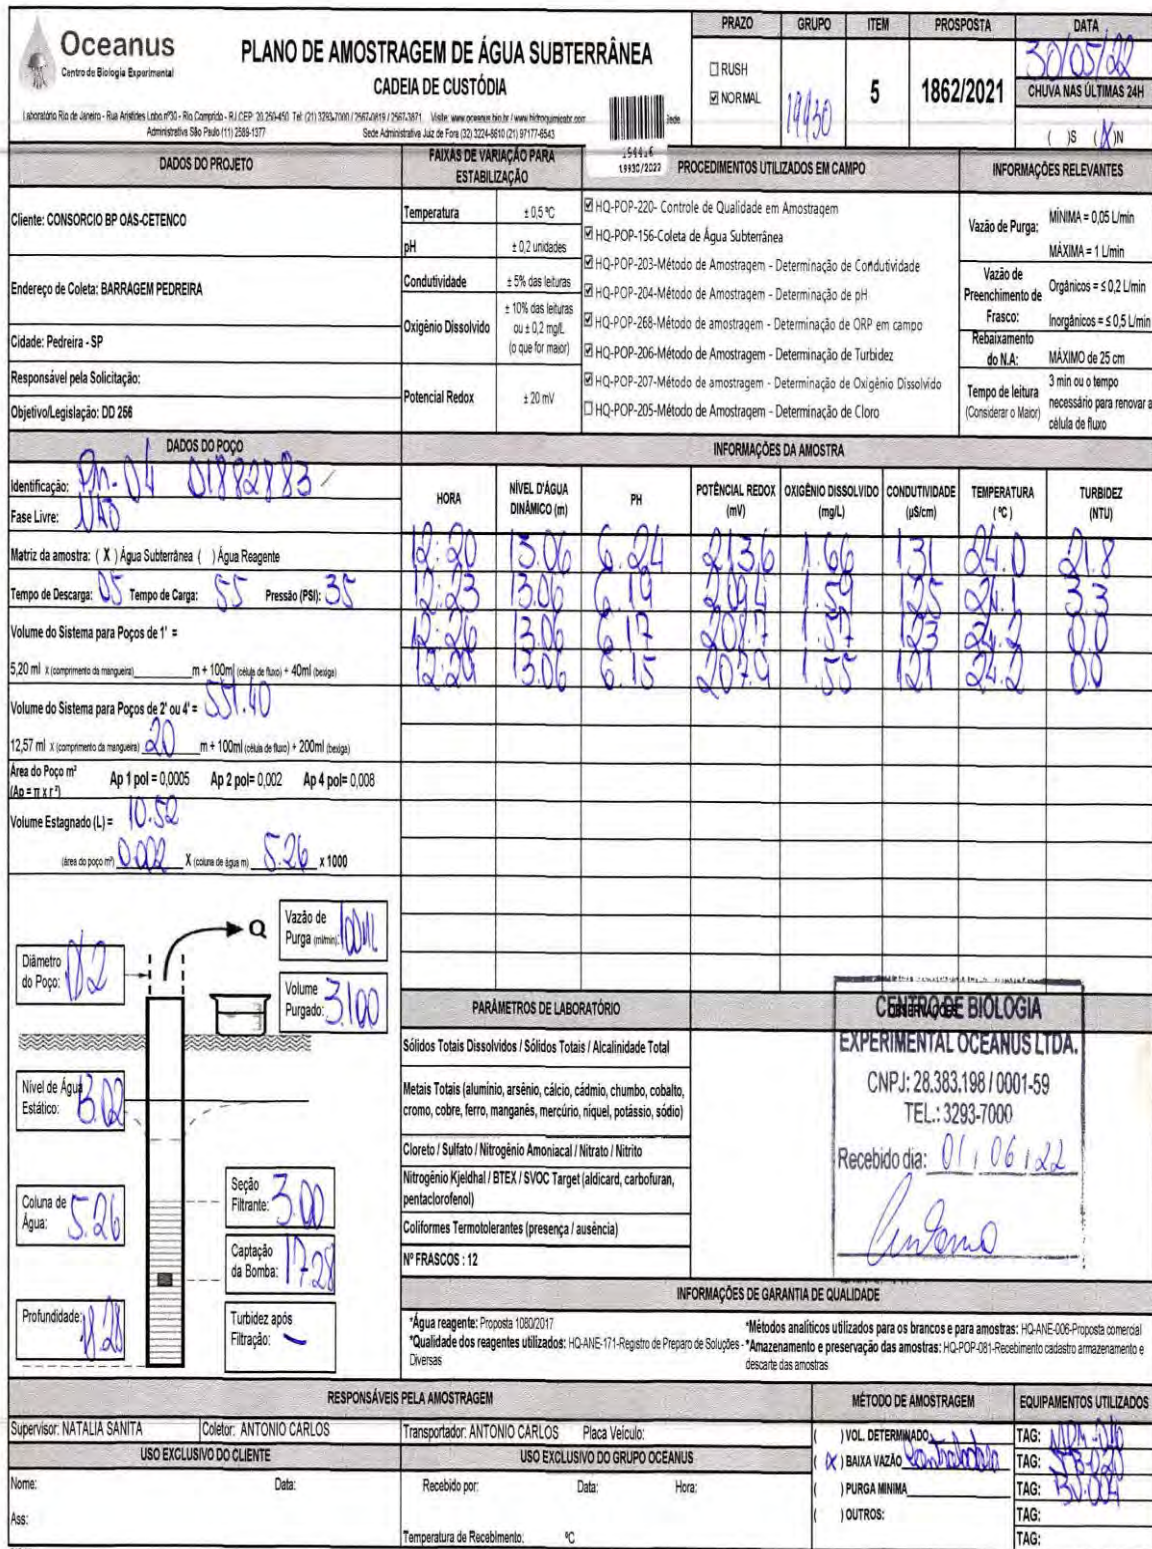 Oceanus
Centro de Biologia Experimental
PLANO DE AMOSTRAGEM DE ÁGUA SUBTERRÂNEA
CADEIA DE CUSTÓDIA
Laboratório Rio de Janeiro - Rua Aristides Lobo nº30 - Rio Comprido - RJ CEP: 20.250-450 Tel: (21) 3293-7000 / 2567-0819 / 2567-3871 Visite: www.oceanus.bio.br / www.hidroquimicabr.com
Administrativa São Paulo (11) 2589-1377 Sede Administrativa Juiz de Fora (32) 3224-8610 (21) 97177-6543
19930/2022
PRAZO GRUPO ITEM PROSPOSTA DATA
☐ RUSH
☑ NORMAL
19930 5 1862/2021 30/05/22
CHUVA NAS ÚLTIMAS 24H
( )S (X)N
DADOS DO PROJETO
Cliente: CONSORCIO BP OAS-CETENCO
Endereço de Coleta: BARRAGEM PEDREIRA
Cidade: Pedreira - SP
Responsável pela Solicitação:
Objetivo/Legislação: DD 256
FAIXAS DE VARIAÇÃO PARA ESTABILIZAÇÃO
Temperatura ± 0,5 ºC
pH ± 0,2 unidades
Condutividade ± 5% das leituras
Oxigênio Dissolvido ± 10% das leituras ou ± 0,2 mg/L (o que for maior)
Potencial Redox ± 20 mV
PROCEDIMENTOS UTILIZADOS EM CAMPO
☑ HQ-POP-220- Controle de Qualidade em Amostragem
☑ HQ-POP-156-Coleta de Água Subterrânea
☑ HQ-POP-203-Método de Amostragem - Determinação de Condutividade
☑ HQ-POP-204-Método de Amostragem - Determinação de pH
☑ HQ-POP-268-Método de amostragem - Determinação de ORP em campo
☑ HQ-POP-206-Método de Amostragem - Determinação de Turbidez
☑ HQ-POP-207-Método de amostragem - Determinação de Oxigênio Dissolvido
☐ HQ-POP-205-Método de Amostragem - Determinação de Cloro
INFORMAÇÕES RELEVANTES
Vazão de Purga: MÍNIMA = 0,05 L/min
MÁXIMA = 1 L/min
Vazão de Preenchimento de Frasco: Orgânicos = ≤ 0,2 L/min
Inorgânicos = ≤ 0,5 L/min
Rebaixamento do N.A: MÁXIMO de 25 cm
Tempo de leitura (Considerar o Maior) 3 min ou o tempo necessário para renovar a célula de fluxo
DADOS DO POÇO
Identificação: Pm-04 01882883
Fase Livre: NÃO
Matriz da amostra: ( X ) Água Subterrânea ( ) Água Reagente
Tempo de Descarga: 05 Tempo de Carga: 55 Pressão (PSI): 35
Volume do Sistema para Poços de 1' =
5,20 ml x (comprimento da mangueira) m + 100ml (célula de fluxo) + 40ml (bexiga)
Volume do Sistema para Poços de 2' ou 4' = 551.40
12,57 ml x (comprimento da mangueira) 20 m + 100ml (célula de fluxo) + 200ml (bexiga)
Área do Poço m² (Ap = π x r²) Ap 1 pol = 0,0005 Ap 2 pol= 0,002 Ap 4 pol= 0,008
Volume Estagnado (L) = 10.52
(área do poço m²) 0.002 X (coluna de água m) 5.26 x 1000
INFORMAÇÕES DA AMOSTRA
HORA NÍVEL D'ÁGUA DINÂMICO (m) PH POTÊNCIAL REDOX (mV) OXIGÊNIO DISSOLVIDO (mg/L) CONDUTIVIDADE (µS/cm) TEMPERATURA (ºC) TURBIDEZ (NTU)
12:20 13.06 6.24 213.6 1.66 131 24.0 21.8
12:23 13.06 6.19 209.4 1.59 125 24.1 3.3
12:26 13.06 6.17 208.7 1.57 123 24.2 0.0
12:29 13.06 6.15 207.9 1.55 121 24.2 0.0
Vazão de Purga (ml/min): 100ml
Q
Diâmetro do Poço: 02
Volume Purgado: 3.100
Nível de Água Estático: 13.02
Seção Filtrante: 3.00
Coluna de Água: 5.26
Captação da Bomba: 17.28
Profundidade: 18.28
Turbidez após Filtração: -
PARÂMETROS DE LABORATÓRIO
Sólidos Totais Dissolvidos / Sólidos Totais / Alcalinidade Total
Metais Totais (alumínio, arsênio, cálcio, cádmio, chumbo, cobalto, cromo, cobre, ferro, manganês, mercúrio, níquel, potássio, sódio)
Cloreto / Sulfato / Nitrogênio Amoniacal / Nitrato / Nitrito
Nitrogênio Kjeldhal / BTEX / SVOC Target (aldicard, carbofuran, pentaclorofenol)
Coliformes Termotolerantes (presença / ausência)
Nº FRASCOS : 12
CENTRO DE BIOLOGIA
EXPERIMENTAL OCEANUS LTDA.
CNPJ: 28.383.198 / 0001-59
TEL.: 3293-7000
Recebido dia: 01 / 06 / 22
INFORMAÇÕES DE GARANTIA DE QUALIDADE
*Água reagente: Proposta 1080/2017
*Qualidade dos reagentes utilizados: HQ-ANE-171-Registro de Preparo de Soluções - Diversas
*Métodos analíticos utilizados para os brancos e para amostras: HQ-ANE-006-Proposta comercial
*Amazenamento e preservação das amostras: HQ-POP-081-Recebimento cadastro armazenamento e descarte das amostras
RESPONSÁVEIS PELA AMOSTRAGEM
Supervisor: NATALIA SANITA Coletor: ANTONIO CARLOS Transportador: ANTONIO CARLOS Placa Veículo:
USO EXCLUSIVO DO CLIENTE
Nome: Data:
Ass:
USO EXCLUSIVO DO GRUPO OCEANUS
Recebido por: Data: Hora:
Temperatura de Recebimento: ºC
MÉTODO DE AMOSTRAGEM
( ) VOL. DETERMINADO
( X ) BAIXA VAZÃO
( ) PURGA MINIMA
( ) OUTROS:
EQUIPAMENTOS UTILIZADOS
TAG:
TAG:
TAG: BV-004
TAG:
TAG: